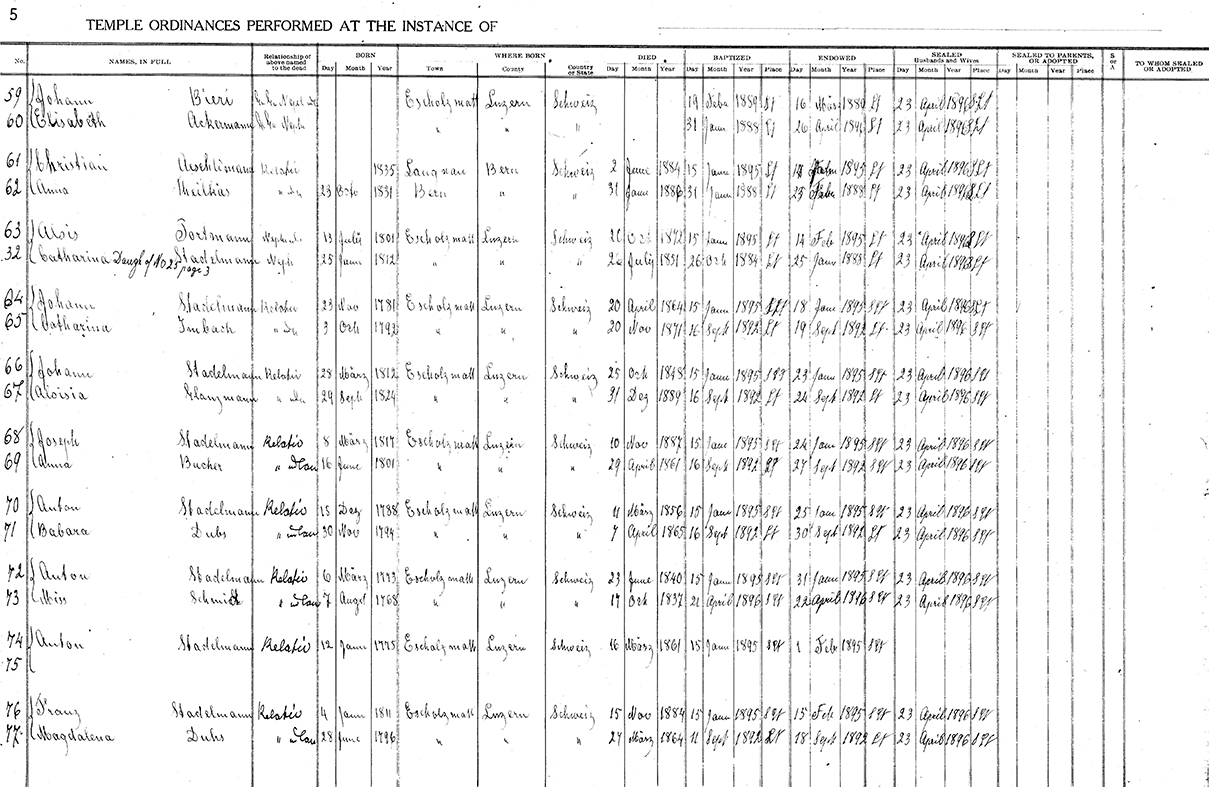 5
TEMPLE ORDINANCES PERFORMED AT THE INSTANCE OF
No. NAMES, IN FULL Relationship of above named to the dead BORN WHERE BORN DIED BAPTIZED ENDOWED SEALED Husbands and Wives SEALED TO PARENTS, OR ADOPTED S or A TO WHOM SEALED OR ADOPTED
Day Month Year Town County Country or State Day Month Year Day Month Year Place Day Month Year Place Day Month Year Place Day Month Year Place
59 Johann Bieri Escholzmatt Luzern Schweiz 19 Febr 1889 Lt 16 März Lt 23 April 1896 S Lt
60 Elisabeth Ackermann " " " 31 Jann 1888 Lt 26 April Lt 23 April 1896 S Lt
61 Christian Aeschlimann Relativ 1835 Langnau Bern Schweiz 2 June 1884 15 Jann 1895 Lt 1895 Lt 23 April 1896 S Lt
62 Anna 23 Octo 1831 Bern " " 31 Jann 1886 31 Jann 1888 Lt 23 Febr 1888 Lt 23 April 1896 S Lt
63 Alois Portmann 13 July 1801 Escholzmatt Luzern Schweiz Oct 1872 15 Jann 1895 Lt 14 Feb 1895 Lt 23 April Lt
32 Catharina Daugh of No 25 page 3 Stadelmann 25 June 1812 " " " 26 July 1851 26 Oct 1884 Lt 25 Jann 1888 Lt 23 April Lt
64 Johann Stadelmann Relativ 23 Nov 1781 Escholzmatt Luzern Schweiz 20 April 1864 15 Jann 1895 18 Jann 1895 S Lt 23 April 1896 S Lt
65 Catharina Imbach " 3 Oct 1792 " " " 20 Nov 1871 16 Sept 1892 Lt 19 Sept 1892 Lt 23 April 1896 S Lt
66 Johann Stadelmann Relativ 28 März 1812 Escholzmatt Luzern Schweiz 25 Oct 1848 15 Jann 1895 S Lt 23 Jann 1895 S Lt 23 April 1896 S Lt
67 Aloisia Glanzmann " 29 Sept 1824 " " " 31 Dez 1889 16 Sept 1892 Lt 24 Sept 1892 Lt 23 April 1896 S Lt
68 Joseph Stadelmann Relativ 8 März 1817 Escholzmatt Luzein Schweiz 10 Nov 1887 15 Jann 1895 S Lt 24 Jann 1895 S Lt 23 April 1896 S Lt
69 Anna Bucher " 16 June 1801 " " " 29 April 1861 16 Sept 1892 Lt 27 Sept 1892 S Lt 23 April 1896 S Lt
70 Anton Stadelmann Relativ 15 Dez 1788 Escholzmatt Luzern Schweiz 11 März 1856 15 Jann 1895 S Lt 25 Jann 1895 S Lt 23 April 1896 S Lt
71 Babara Dubs " 30 Nov 1794 " " " 7 April 1865 16 Sept 1892 Lt 30 Sept 1892 Lt 23 April 1896 S Lt
72 Anton Stadelmann Relativ 6 März 1773 Escholzmatt Luzern Schweiz 23 June 1840 15 Jann 1895 S Lt 31 Jann 1895 S Lt 23 April 1896 S Lt
73 Miss Schmidt " 7 Augst 1768 " " " 17 Oct 1837 21 April 1896 S Lt 22 April 1896 S Lt 23 April 1896 S Lt
74 Anton Stadelmann Relativ 12 Jann 1775 Escholzmatt Luzern Schweiz 16 März 1861 15 Jann 1895 S Lt 1 Febr 1895 S Lt
75
76 Franz Stadelmann Relativ 4 Jann 1811 Escholzmatt Luzern Schweiz 15 Nov 1884 15 Jann 1895 S Lt 15 Feb 1895 S Lt 23 April 1896 S Lt
77 Magdalena Dubs " 28 June 1796 " " " 27 März 1864 11 Sept 1892 Lt 18 Sept 1892 Lt 23 April 1896 S Lt